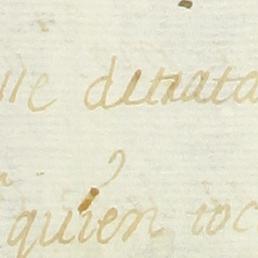 lle detrata
quien toc